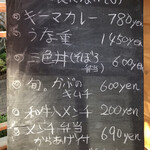 キーマカレー 780yen
うな重 1450yen
三色丼(そぼろ弁当) 600yen
旬、かぶのキムチ 600yen
和牛ハメンチ 200yen
メンチ弁当 690yen
からあげ付